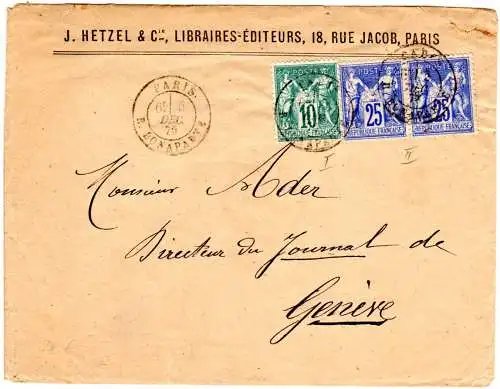 J. HETZEL & Cie, LIBRAIRES-ÉDITEURS, 18, RUE JACOB, PARIS
PARIS
6E 6
DEC.
76
R. BONAPARTE
POSTE POSTE
10 25 25
RÉPUBLIQUE FRANÇAISE RÉPUBLIQUE FRANÇAISE
I II
Monsieur Ader
Directeur du Journal de
Genève